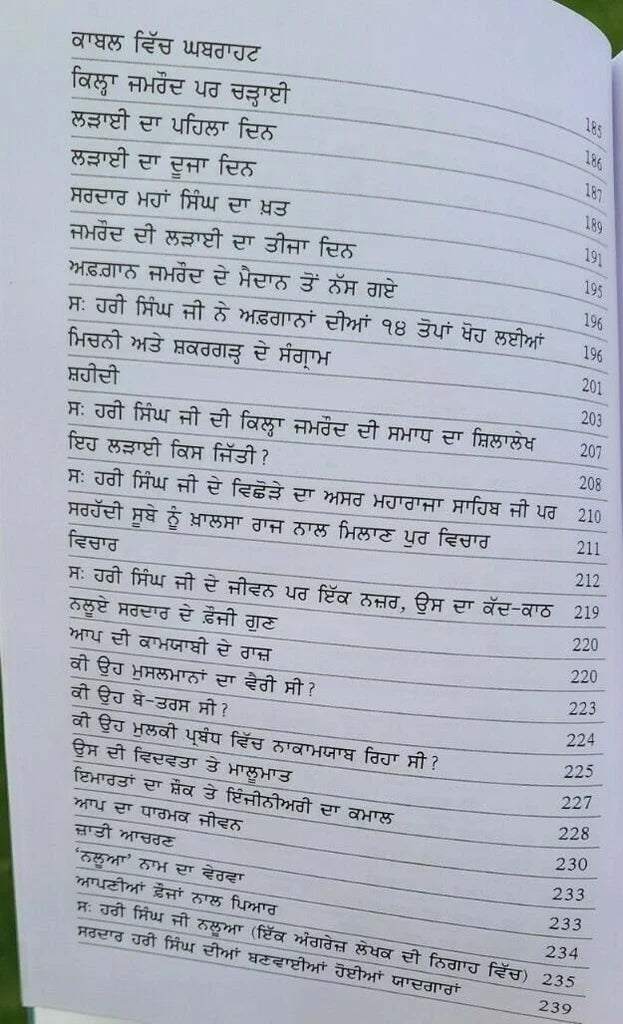 ਕਾਬਲ ਵਿੱਚ ਘਬਰਾਹਟ 185
ਕਿਲ੍ਹਾ ਜਮਰੌਦ ਪਰ ਚੜ੍ਹਾਈ 186
ਲੜਾਈ ਦਾ ਪਹਿਲਾ ਦਿਨ 187
ਲੜਾਈ ਦਾ ਦੂਜਾ ਦਿਨ 189
ਸਰਦਾਰ ਮਹਾਂ ਸਿੰਘ ਦਾ ਖ਼ਤ 191
ਜਮਰੌਦ ਦੀ ਲੜਾਈ ਦਾ ਤੀਜਾ ਦਿਨ 195
ਅਫ਼ਗਾਨ ਜਮਰੌਦ ਦੇ ਮੈਦਾਨ ਤੋਂ ਨੱਸ ਗਏ 196
ਸਃ ਹਰੀ ਸਿੰਘ ਜੀ ਨੇ ਅਫ਼ਗਾਨਾਂ ਦੀਆਂ ੧੪ ਤੋਪਾਂ ਖੋਹ ਲਈਆਂ 196
ਮਿਚਨੀ ਅਤੇ ਸ਼ਕਰਗੜ੍ਹ ਦੇ ਸੰਗ੍ਰਾਮ 201
ਸ਼ਹੀਦੀ 203
ਸਃ ਹਰੀ ਸਿੰਘ ਜੀ ਦੀ ਕਿਲ੍ਹਾ ਜਮਰੌਦ ਦੀ ਸਮਾਧ ਦਾ ਸ਼ਿਲਾਲੇਖ 207
ਇਹ ਲੜਾਈ ਕਿਸ ਜਿੱਤੀ ? 208
ਸਃ ਹਰੀ ਸਿੰਘ ਜੀ ਦੇ ਵਿਛੋੜੇ ਦਾ ਅਸਰ ਮਹਾਰਾਜਾ ਸਾਹਿਬ ਜੀ ਪਰ 210
ਸਰਹੱਦੀ ਸੂਬੇ ਨੂੰ ਖ਼ਾਲਸਾ ਰਾਜ ਨਾਲ ਮਿਲਾਣ ਪੁਰ ਵਿਚਾਰ 211
ਵਿਚਾਰ 212
ਸਃ ਹਰੀ ਸਿੰਘ ਜੀ ਦੇ ਜੀਵਨ ਪਰ ਇੱਕ ਨਜ਼ਰ, ਉਸ ਦਾ ਕੱਦ-ਕਾਠ 219
ਨਲੂਏ ਸਰਦਾਰ ਦੇ ਫ਼ੌਜੀ ਗੁਣ 220
ਆਪ ਦੀ ਕਾਮਯਾਬੀ ਦੇ ਰਾਜ਼ 220
ਕੀ ਉਹ ਮੁਸਲਮਾਨਾਂ ਦਾ ਵੈਰੀ ਸੀ ? 223
ਕੀ ਉਹ ਬੇ-ਤਰਸ ਸੀ ? 224
ਕੀ ਉਹ ਮੁਲਕੀ ਪ੍ਰਬੰਧ ਵਿੱਚ ਨਾਕਾਮਯਾਬ ਰਿਹਾ ਸੀ ? 225
ਉਸ ਦੀ ਵਿਦਵਤਾ ਤੇ ਮਾਲੂਮਾਤ 227
ਇਮਾਰਤਾਂ ਦਾ ਸ਼ੌਕ ਤੇ ਇੰਜੀਨੀਅਰੀ ਦਾ ਕਮਾਲ 228
ਆਪ ਦਾ ਧਾਰਮਕ ਜੀਵਨ 230
ਜ਼ਾਤੀ ਆਚਰਣ 233
‘ਨਲੂਆ’ ਨਾਮ ਦਾ ਵੇਰਵਾ 233
ਆਪਣੀਆਂ ਫ਼ੌਜਾਂ ਨਾਲ ਪਿਆਰ 234
ਸਃ ਹਰੀ ਸਿੰਘ ਜੀ ਨਲੂਆ (ਇੱਕ ਅੰਗਰੇਜ਼ ਲੇਖਕ ਦੀ ਨਿਗਾਹ ਵਿੱਚ) 235
ਸਰਦਾਰ ਹਰੀ ਸਿੰਘ ਦੀਆਂ ਬਣਵਾਈਆਂ ਹੋਈਆਂ ਯਾਦਗਾਰਾਂ 239